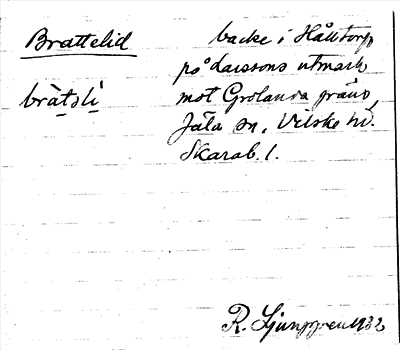 Brattelid
brà̤tsli̤
backe i Hålltorp
på Larssons utmark
mot Grolanda gräns,
Jäla sn, Vilske hd.
Skarab. l.
R. Ljunggren 1932